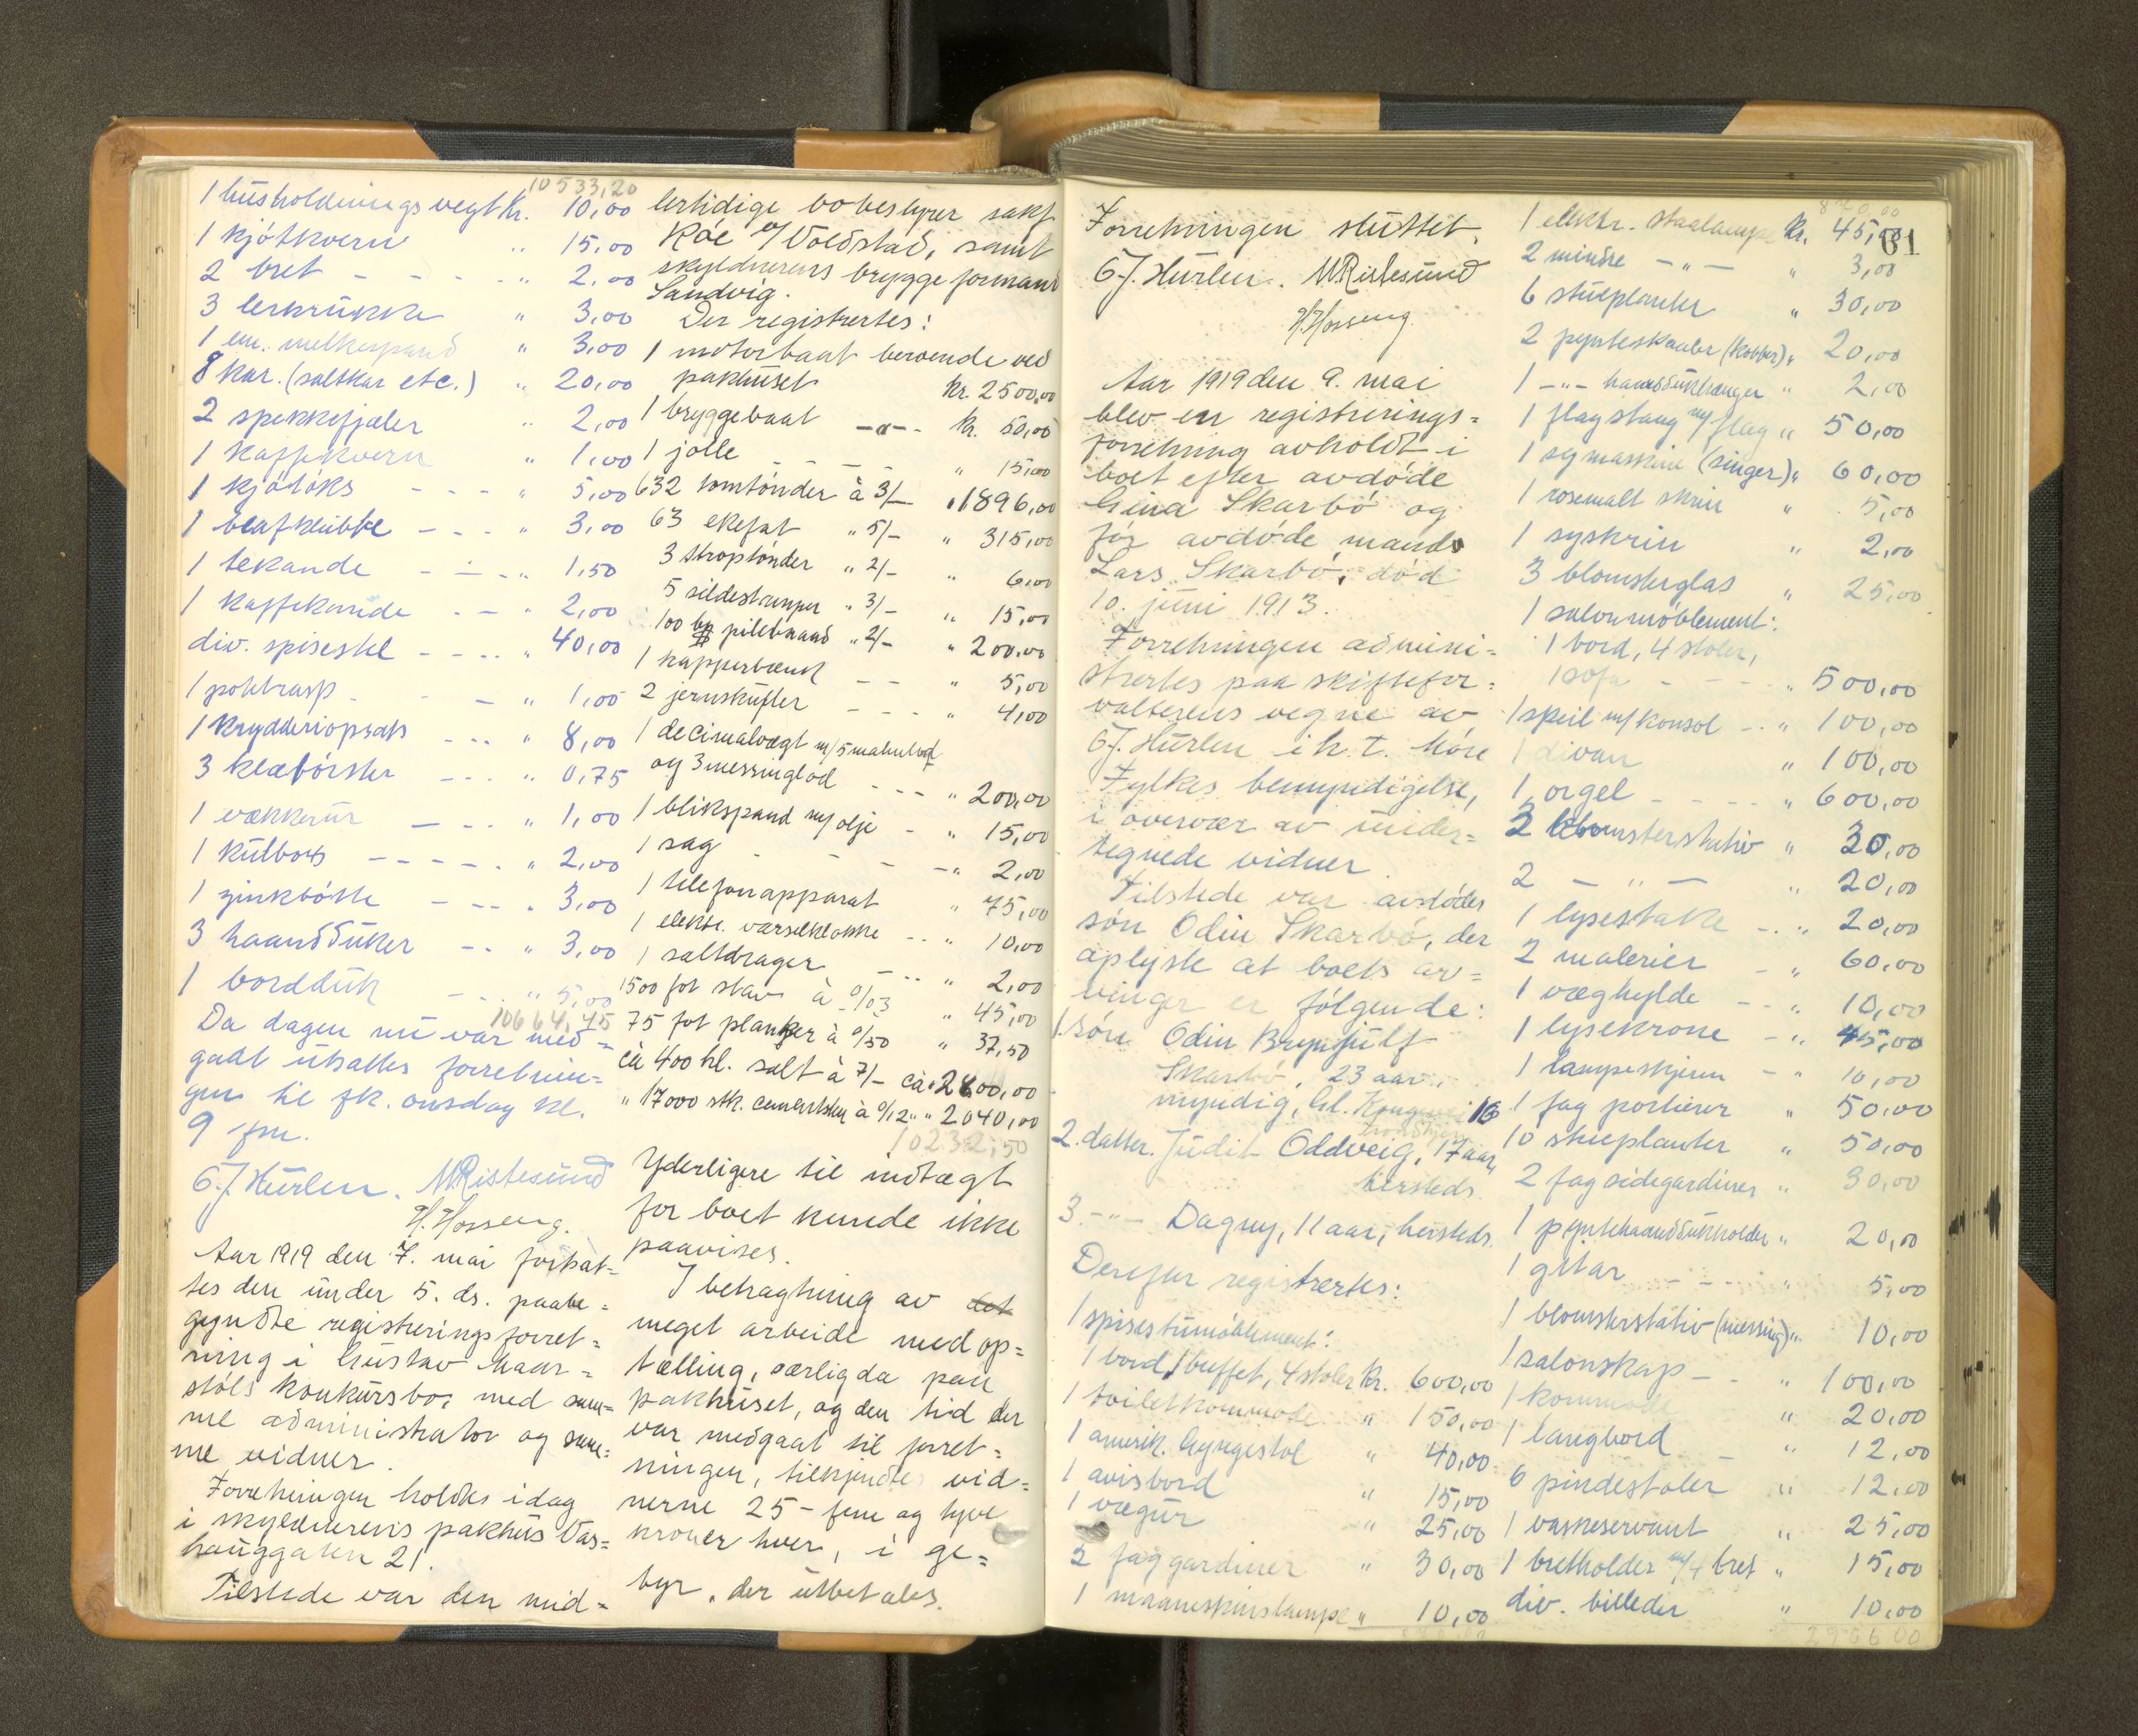 10533,20
1 husholdningsvegt kr. 10,00
1 kjøtkvern " 15,00
2 bret - - - - " 2,00
3 lerkrukke " 3,00
1 em. melkespand " 3,00
8 kar. (saltkar etc.) " 20,00
2 spekkefjæler " 2,00
1 kaffekvern " 1,00
1 kjøtøks - - - " 5,00
1 bøafklubbe - - - " 3,00
1 tekande - - - " 1,50
1 kaffekande - - " 2,00
div. spisestel - - - " 40,00
1 potetrasp - - - " 1,00
1 krydderiopsats - - - " 8,00
3 klæbørster - - - " 0,75
1 vækkerur - - - " 1,00
1 kulboks - - - - - " 2,00
1 zinkbøtte - - - " 3,00
3 haandduker - - " 3,00
1 bordduk - - - " 5,00
10664,45
Da dagen nu var med=
gaat utsattes forretnin=
gen til fk. onsdag kl.
9 fm.
G.J. Hurlen. M Ristesund
H. Hosseng.
Aar 1919 den 7. mai fortsat=
tes den under 5. ds. paabe=
gyndte registreringsforret=
ning i Gustav Maar=
støls konkursbo, med sam=
me administrator og sam=
me vidner.
Forretningen holdtes idag
i skyldnerens pakhus Vas=
hauggaten 21.
Tilstede var den mid=
lertidige bobestyrer sakf.
Roe o/ Voldstad, samt
skyldnerens bryggeformand
Sandvig.
Der registrertes:
1 motorbaat beroende ved
pakhuset kr. 2500,00
1 bryggebaat -"- kr. 50,00
1 jolle - - - - " 15,00
632 tomtønder à 3/- " 1896,00
63 ekefat " 5/- " 315,00
3 stroptønder " 2/- " 6,00
5 sildestamper " 3/- " 15,00
100 bp pilebaand " 2/- " 200,00
1 kapperbænk - - " 5,00
2 jernskufler - - - " 4,00
1 decimalvægt m/ 5 malmlod
og 3 messinglod - - - " 200,00
1 blikspand m/ olje - " 15,00
1 sag - - - - " 2,00
1 telefonapparat " 75,00
1 elektr. varselklokke - - " 10,00
1 saltdrager - - - " 2,00
1500 fot stav à 0/03 " 45,00
75 fot planker à 0/50 " 37,50
ca 400 hl. salt à 7/- ca " 2800,00
" 17000 stk. cementsten à 0/12 " " 2040,00
10232,50
Yderligere til indtægt
for boet kunde ikke
paavises.
I betragtning av det
meget arbeide med op=
tælling, særlig da paa
pakhuset, og den tid der
var medgaat til forret=
ningen, tilkjendtes vid=
nerne 25 - fem og tyve
kroner hver, i ge=
byr, der utbetales.
Forretningen sluttet.
G.J. Hurlen. M Ristesund
H. Hosseng
Aar 1919 den 9. mai
blev en registrerings=
forretning avholdt i
boet efter avdøde
Gina Skarbø og
før avdøde mand
Lars Skarbø, død
10. juni 1913.
Forretningen admini=
strertes paa skiftefor=
valterens vegne av
G.J. Hurlen i h. t. Møre
Fylkes bemyndigelse,
i overvær av under=
tegnede vidner.
Tilstede var avdødes
søn Odin Skarbø, der
oplyste at boets ar=
vinger er følgende:
1. søn Odin Brynjulf
Skarbø, 23 aar,
myndig, Gl. Kongevei 16
Trondhjem
2. datter. Judit Oddveig, 17 aar,
hersteds.
3. -"- Dagny, 11 aar, hersteds.
Derefter registrertes:
1 spisestumøblement:
1 bord, 1 buffet, 4 stoler kr. 600,00
1 toiletkommode " 150,00
1 amerik. gyngestol " 40,00
1 avisbord " 15,00
1 vægur " 25,00
2 fag gardiner " 30,00
1 maaneskinslampe " 10,00
870,00
61
870,00
1 elektr. staalampe kr. 45,00
2 mindre -"- " 3,00
6 stueplanter " 30,00
2 pynteskaaler (kobber) " 20,00
1 -"- haanddukhænger " 2,00
1 flagstang m/ flag " 50,00
1 symaskine (singer) " 60,00
1 rosemalt skrin " 5,00
1 syskrin " 2,00
3 blomsterglas " 25,00
1 salonmøblement:
1 bord, 4 stoler,
1 sofa - - - " 500,00
1 speil m/ konsol - - " 100,00
1 divan " 100,00
1 orgel - - - - " 600,00
2 blomsterstativ " 30,00
2 -"- " 20,00
1 lysestake - " 20,00
2 malerier - " 60,00
1 væghylde - - " 10,00
1 lysekrone - " 45,00
1 lampeskjerm - " 10,00
1 fag portierer " 50,00
10 stueplanter " 50,00
2 fag sidegardiner " 30,00
1 pyntehaanddukholder " 20,00
1 gitar - - - - " 5,00
1 blomsterstativ (messing) " 10,00
1 salonskap - - " 100,00
1 kommode " 20,00
1 langbord - " 12,00
6 pindestoler " 12,00
1 vaskeservant " 25,00
1 bretholder m/ 4 bret " 15,00
div. billeder " 10,00
2966,00